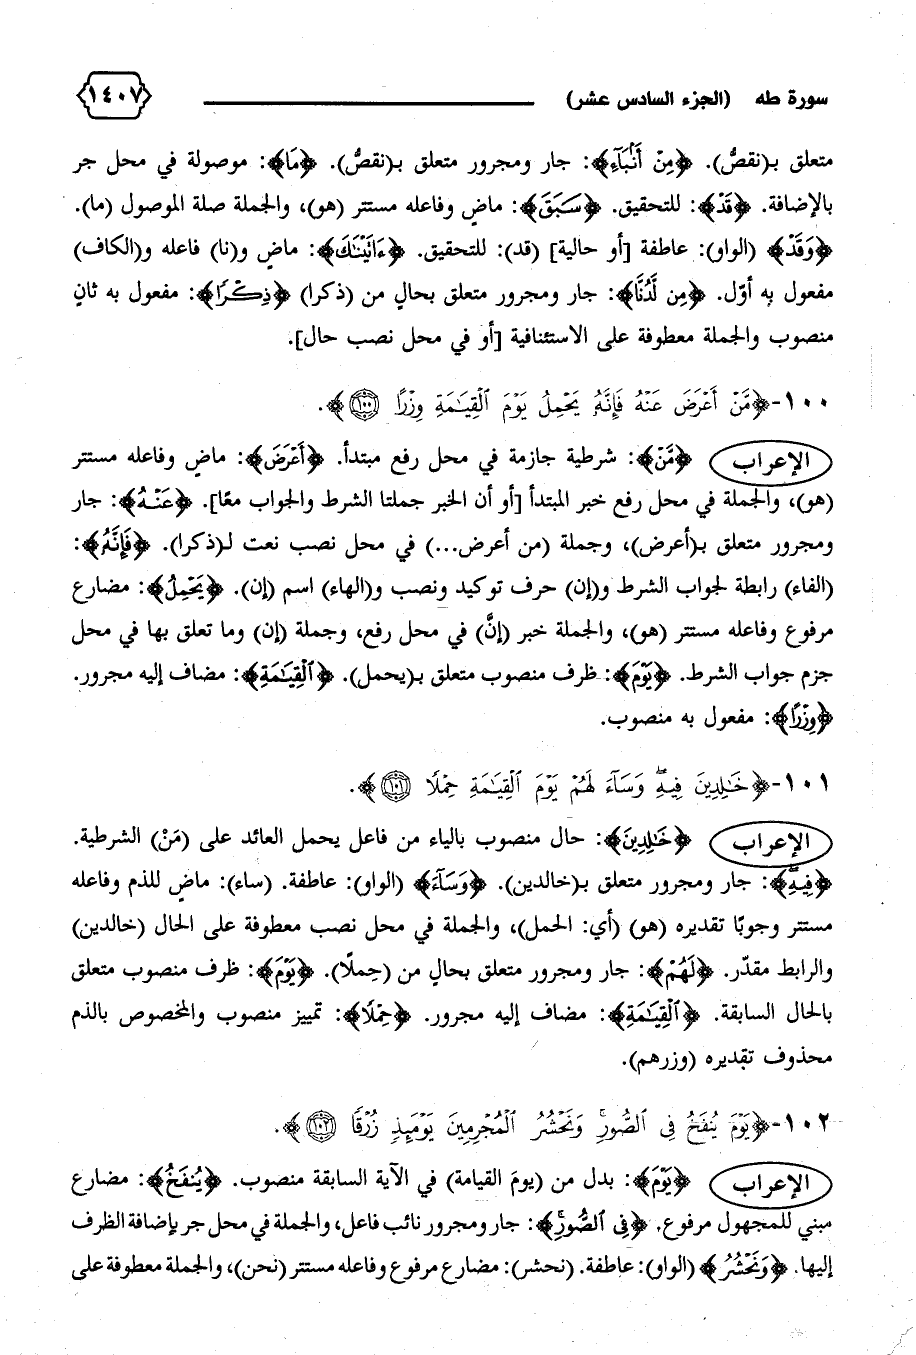 سورة طه (الجزء السادس عشر) ١٤٠٧
متعلق بـ(نقصُّ). ﴿مِنْ أَنۢبَآءِ﴾: جار ومجرور متعلق بـ(نقصُّ). ﴿مَا﴾: موصولة في محل جر
بالإضافة. ﴿قَدْ﴾: للتحقيق. ﴿سَبَقَ﴾: ماضٍ وفاعله مستتر (هو)، والجملة صلة الموصول (ما).
﴿وَقَدْ﴾ (الواو): عاطفة [أو حالية] (قد): للتحقيق. ﴿ءَاتَيْنَٰكَ﴾: ماضٍ و(نا) فاعله و(الكاف)
مفعول به أوّل. ﴿مِن لَّدُنَّا﴾: جار ومجرور متعلق بحالٍ من (ذكرا) ﴿ذِكْرًا﴾: مفعول به ثانٍ
منصوب والجملة معطوفة على الاستئنافية [أو في محل نصب حال].
١٠٠-﴿مَّنْ أَعْرَضَ عَنْهُ فَإِنَّهُۥ يَحْمِلُ يَوْمَ ٱلْقِيَٰمَةِ وِزْرًا ١٠٠﴾.
الإعراب ﴿مَّنْ﴾: شرطية جازمة في محل رفع مبتدأ. ﴿أَعْرَضَ﴾: ماضٍ وفاعله مستتر
(هو)، والجملة في محل رفع خبر المبتدأ [أو أن الخبر جملتا الشرط والجواب معًا]. ﴿عَنْهُ﴾: جار
ومجرور متعلق بـ(أعرض)، وجملة (من أعرض...) في محل نصب نعت لـ(ذكرا). ﴿فَإِنَّهُۥ﴾:
(الفاء) رابطة لجواب الشرط و(إن) حرف توكيد ونصب و(الهاء) اسم (إن). ﴿يَحْمِلُ﴾: مضارع
مرفوع وفاعله مستتر (هو)، والجملة خبر (إنَّ) في محل رفع، وجملة (إن) وما تعلق بها في محل
جزم جواب الشرط. ﴿يَوْمَ﴾: ظرف منصوب متعلق بـ(يحمل). ﴿ٱلْقِيَٰمَةِ﴾: مضاف إليه مجرور.
﴿وِزْرًا﴾: مفعول به منصوب.
١٠١-﴿خَٰلِدِينَ فِيهِ ۖ وَسَآءَ لَهُمْ يَوْمَ ٱلْقِيَٰمَةِ حِمْلًا ١٠١﴾.
الإعراب ﴿خَٰلِدِينَ﴾: حال منصوب بالياء من فاعل يحمل العائد على (مَنْ) الشرطية.
﴿فِيهِ ۖ﴾: جار ومجرور متعلق بـ(خالدين). ﴿وَسَآءَ﴾ (الواو): عاطفة. (ساء): ماضٍ للذم وفاعله
مستتر وجوبًا تقديره (هو) (أي: الحمل)، والجملة في محل نصب معطوفة على الحال (خالدين)
والرابط مقدّر. ﴿لَهُمْ﴾: جار ومجرور متعلق بحالٍ من (حِملًا). ﴿يَوْمَ﴾: ظرف منصوب متعلق
بالحال السابقة. ﴿ٱلْقِيَٰمَةِ﴾: مضاف إليه مجرور. ﴿حِمْلًا﴾: تمييز منصوب والمخصوص بالذم
محذوف تقديره (وزرهم).
١٠٢-﴿يَوْمَ يُنفَخُ فِى ٱلصُّورِ ۚ وَنَحْشُرُ ٱلْمُجْرِمِينَ يَوْمَئِذٍ زُرْقًا ١٠٢﴾.
الإعراب ﴿يَوْمَ﴾: بدل من (يومَ القيامة) في الآية السابقة منصوب. ﴿يُنفَخُ﴾: مضارع
مبني للمجهول مرفوع. ﴿فِى ٱلصُّورِ ۚ﴾: جار ومجرور نائب فاعل، والجملة في محل جر بإضافة الظرف
إليها. ﴿وَنَحْشُرُ﴾ (الواو): عاطفة. (نحشر): مضارع مرفوع وفاعله مستتر (نحن)، والجملة معطوفة على